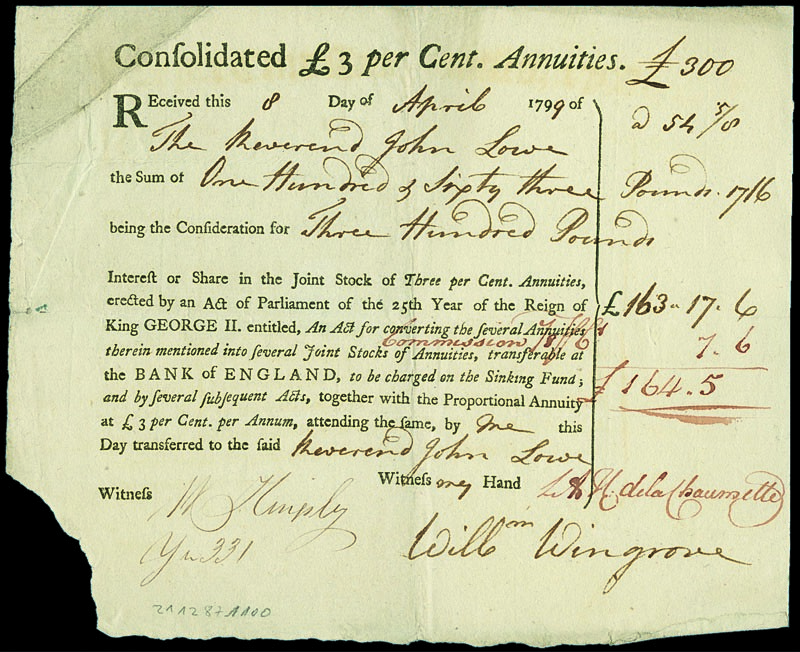 Conſolidated £3 per Cent. Annuities. £300
REceived this 8 Day of April 1799 of
@ 54 5/8
The Reverend John Lowe
the Sum of One Hundred & Sixty three Pounds. 17/6
being the Conſideration for Three Hundred Pounds
Intereſt or Share in the Joint Stock of Three per Cent. Annuities,
erected by an Act of Parliament of the 25th Year of the Reign of
£163 " 17 . 6
King GEORGE II. entitled, An Act for converting the ſeveral Annuities
Commission
7 . 6
therein mentioned into ſeveral Joint Stocks of Annuities, transferable at
the BANK of ENGLAND, to be charged on the Sinking Fund;
£164 . 5
and by ſeveral ſubſequent Acts, together with the Proportional Annuity
at £3 per Cent. per Annum, attending the ſame, by me this
Day transferred to the ſaid Reverend John Lowe
Witneſs my Hand
Witneſs
delaChaumette
Willm Wingrove
331